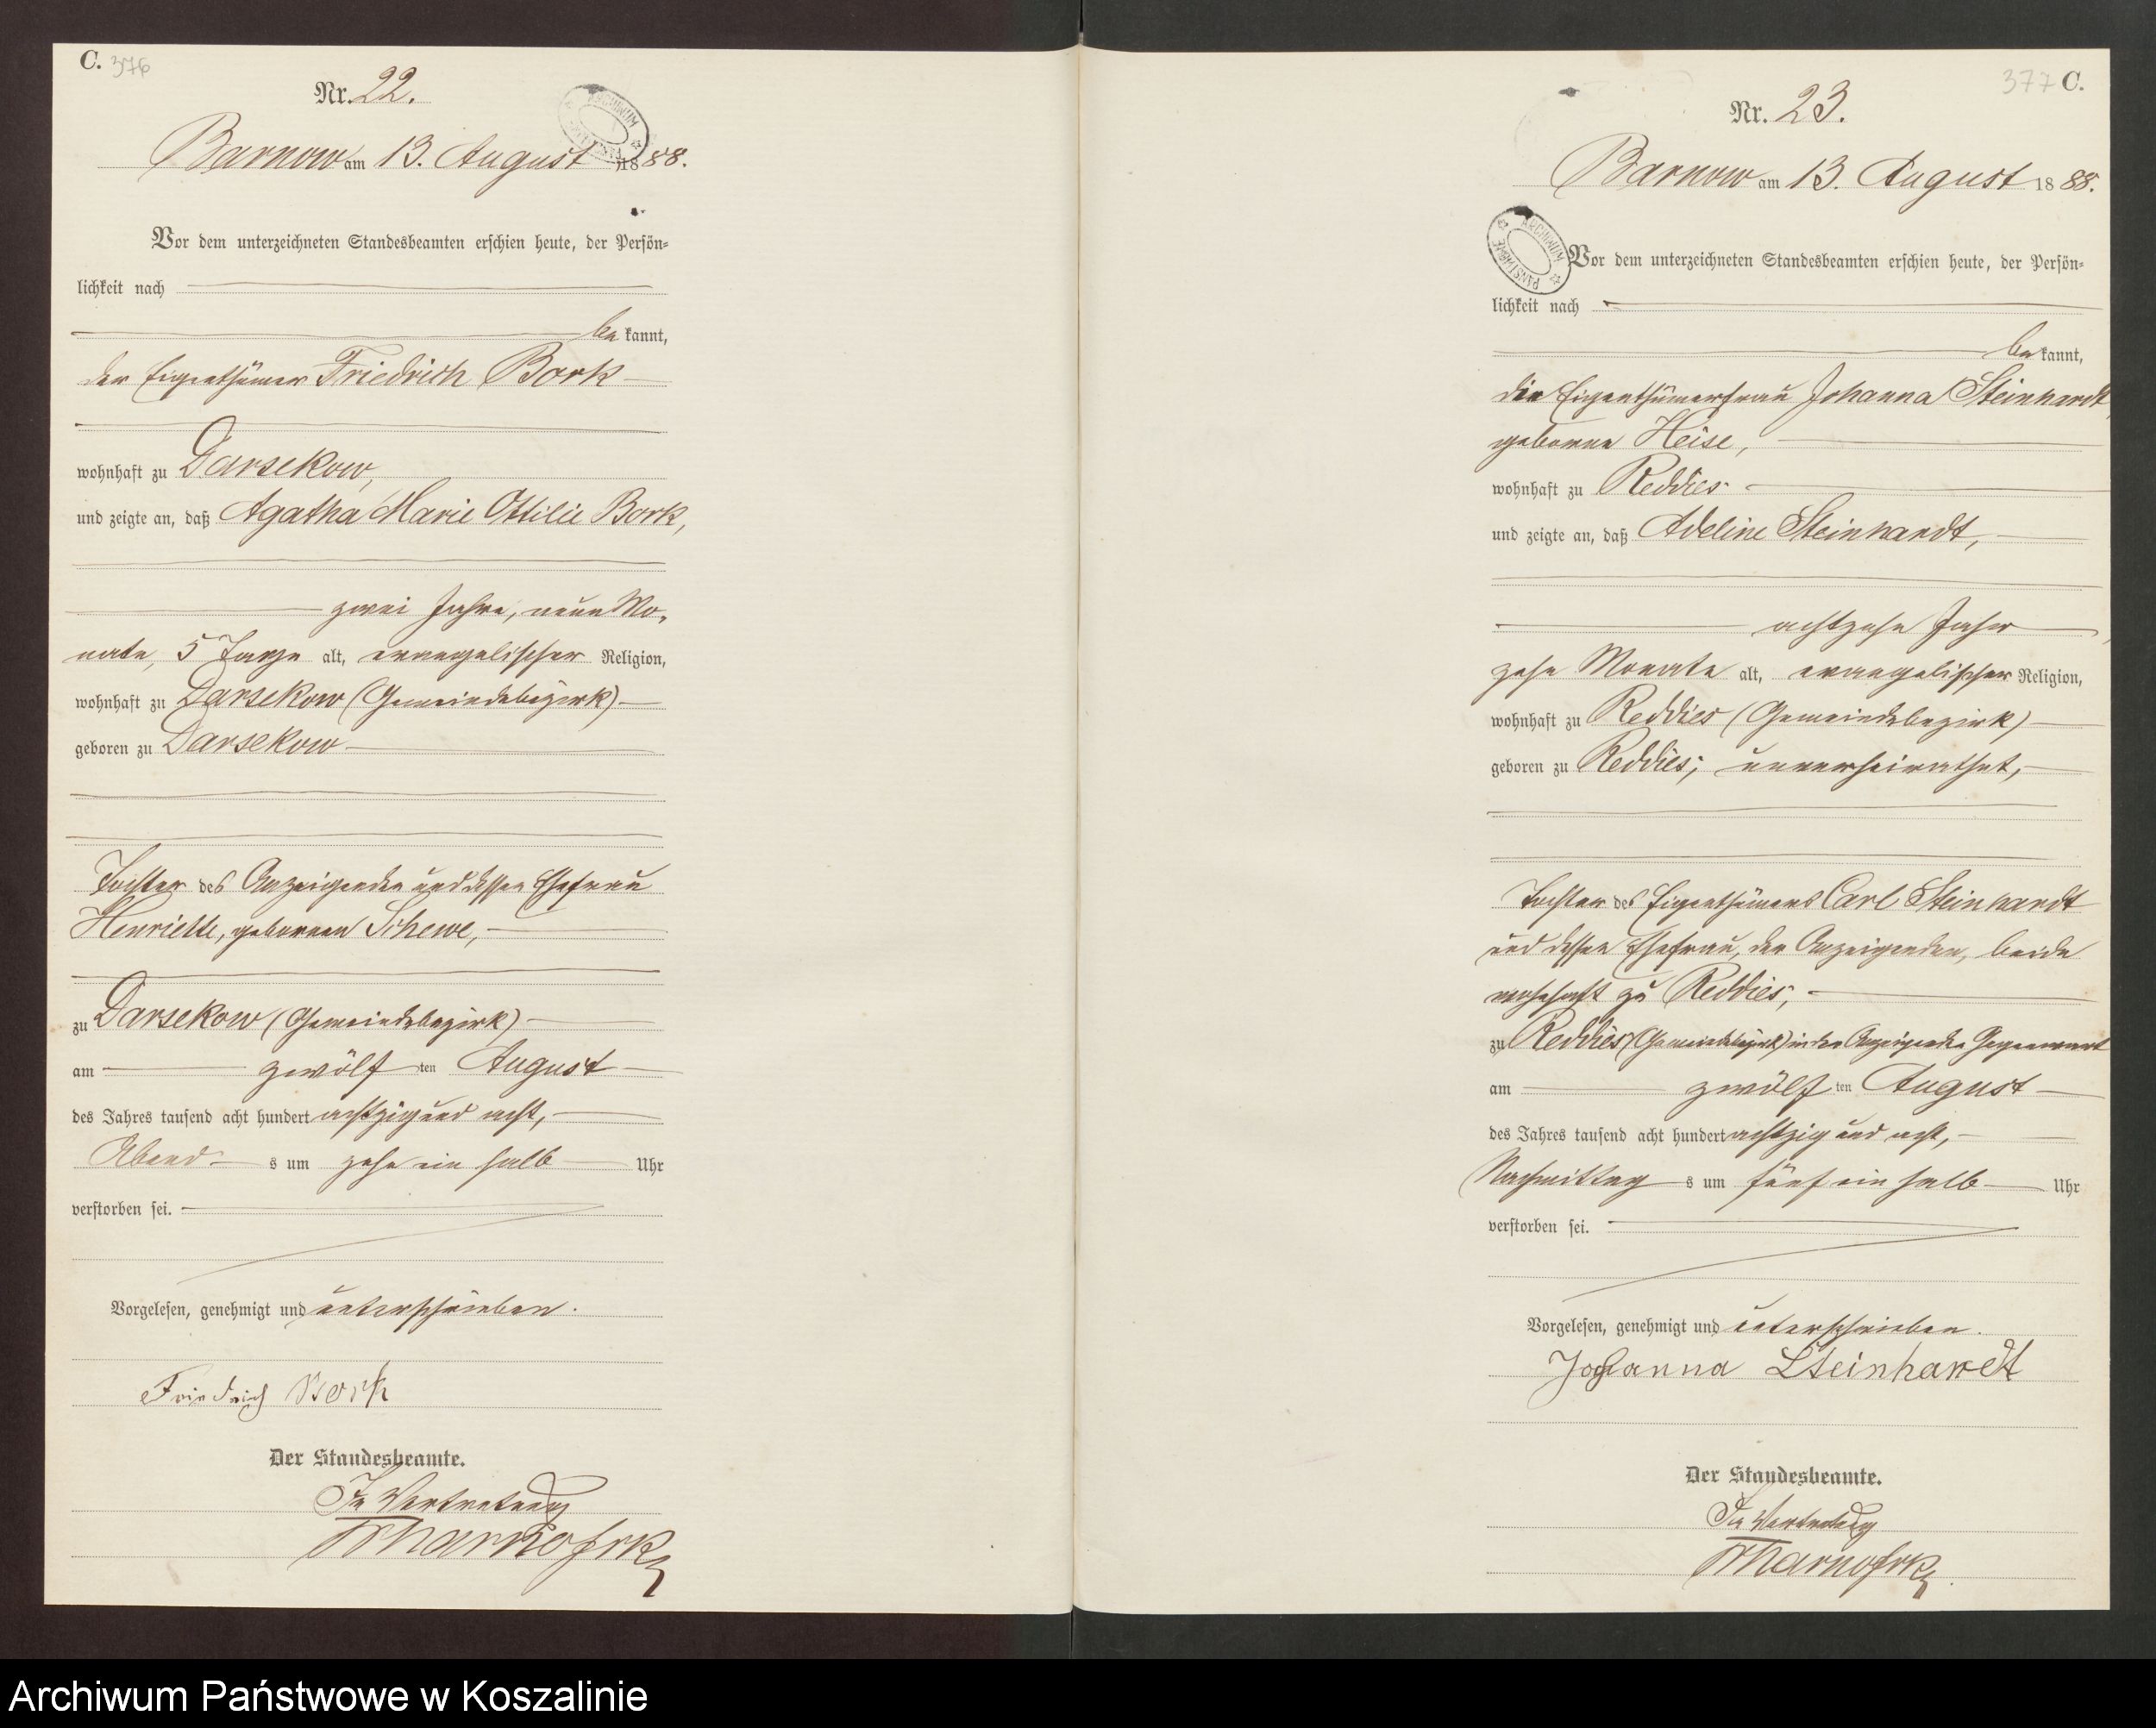 C. 376
Nr. 22.
Barnow am 13. August 1888.
Vor dem unterzeichneten Standesbeamten erschien heute, der Persön-
lichkeit nach
be kannt,
der Eigenthümer Friedrich Bork
wohnhaft zu Darsekow,
und zeigte an, daß Agatha Marie Ottilie Bork,
zwei Jahre, neun Mo-
nate, 5 Tage alt, evangelischer Religion,
wohnhaft zu Darsekow (Gemeindebezirk)
geboren zu Darsekow
Tochter des Anzeigenden und dessen Ehefrau
Henriette, geborenen Schewe,
zu Darsekow (Gemeindebezirk)
am zwölf ten August
des Jahres tausend acht hundert achtzig und acht,
Abend s um zehn ein halb Uhr
verstorben sei.
Vorgelesen, genehmigt und unterschrieben.
Friedrich Bork
Der Standesbeamte.
In Vertretung
377 C.
Nr. 23.
Barnow am 13. August 1888.
ARCHIWUM PAŃSTWOWE
Vor dem unterzeichneten Standesbeamten erschien heute, der Persön-
lichkeit nach
be kannt,
die Eigenthümerfrau Johanna Steinhardt
geborne Heise,
wohnhaft zu Reddies
und zeigte an, daß Adeline Steinhardt,
achtzehn Jahr
zehn Monate alt, evangelischer Religion,
wohnhaft zu Reddies (Gemeindebezirk)
geboren zu Reddies; unverheirathet,
Tochter des Eigenthümers Carl Steinhardt
und dessen Ehefrau, der Anzeigenden, beide
wohnhaft zu Reddies;
zu Reddies (Gemeindebezirk) in der Anzeigenden Gegenwart
am zwölf ten August
des Jahres tausend acht hundert achtzig und acht,
Nachmittag s um fünf ein halb Uhr
verstorben sei.
Vorgelesen, genehmigt und unterschrieben.
Johanna Steinhardt
Der Standesbeamte.
In Vertretung
Archiwum Państwowe w Koszalinie